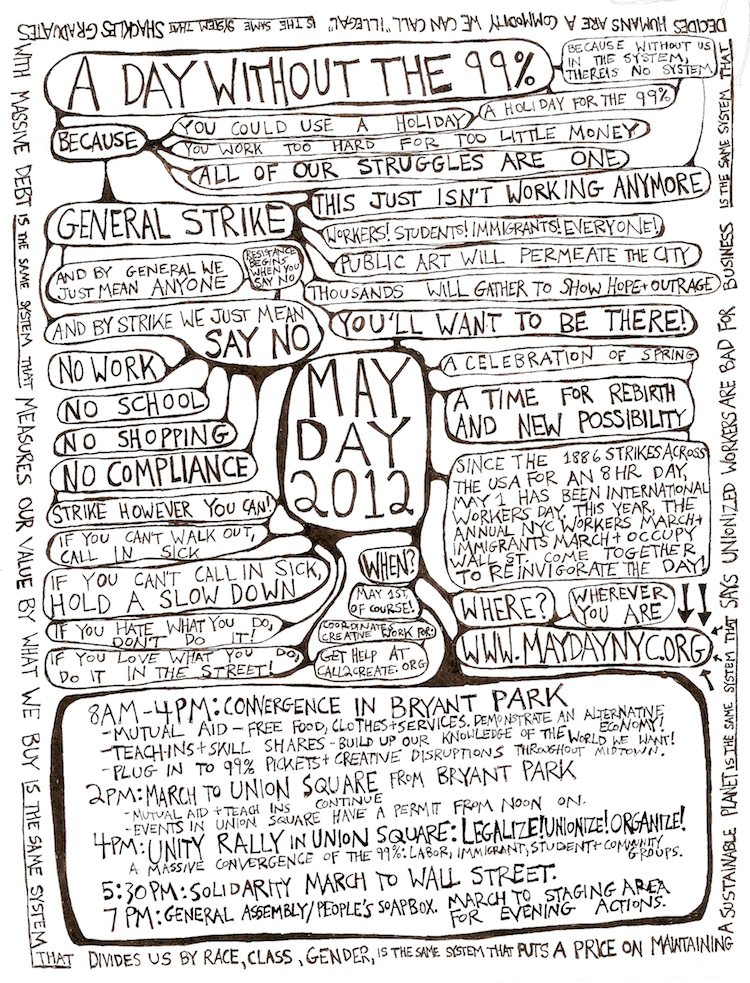 A DAY WITHOUT THE 99%
BECAUSE WITHOUT US
IN THE SYSTEM,
THERE IS NO SYSTEM
A HOLIDAY FOR THE 99%
BECAUSE
YOU COULD USE A HOLIDAY
YOU WORK TOO HARD FOR TOO LITTLE MONEY
ALL OF OUR STRUGGLES ARE ONE
THIS JUST ISN'T WORKING ANYMORE
GENERAL STRIKE
WORKERS! STUDENTS! IMMIGRANTS! EVERYONE!
PUBLIC ART WILL PERMEATE THE CITY
THOUSANDS WILL GATHER TO SHOW HOPE + OUTRAGE
YOU'LL WANT TO BE THERE!
AND BY GENERAL WE
JUST MEAN ANYONE
RESISTANCE
BEGINS
WHEN YOU
SAY NO
AND BY STRIKE WE JUST MEAN
SAY NO
NO WORK
NO SCHOOL
NO SHOPPING
NO COMPLIANCE
STRIKE HOWEVER YOU CAN!
IF YOU CAN'T WALK OUT,
CALL IN SICK
IF YOU CAN'T CALL IN SICK,
HOLD A SLOW DOWN
IF YOU HATE WHAT YOU DO,
DON'T DO IT!
IF YOU LOVE WHAT YOU DO,
DO IT IN THE STREET!
MAY
DAY
2012
A CELEBRATION OF SPRING
A TIME FOR REBIRTH
AND NEW POSSIBILITY
SINCE THE 1886 STRIKES ACROSS
THE USA FOR AN 8 HR DAY,
MAY 1 HAS BEEN INTERNATIONAL
WORKERS DAY. THIS YEAR, THE
ANNUAL NYC WORKERS MARCH +
IMMIGRANTS MARCH + OCCUPY
WALL ST. COME TOGETHER
TO REINVIGORATE THE DAY!
WHEN?
MAY 1ST,
OF COURSE!
COORDINATES
CREATIVE WORK FOR:
GET HELP AT
CALL2CREATE.ORG
WHERE?
WHEREVER
YOU ARE
WWW.MAYDAYNYC.ORG
8AM-4PM: CONVERGENCE IN BRYANT PARK
- MUTUAL AID - FREE FOOD, CLOTHES + SERVICES. DEMONSTRATE AN ALTERNATIVE
ECONOMY!
- TEACH-INS + SKILL SHARES - BUILD UP OUR KNOWLEDGE OF THE WORLD WE WANT!
- PLUG IN TO 99% PICKETS + CREATIVE DISRUPTIONS THROUGHOUT MIDTOWN.
2PM: MARCH TO UNION SQUARE FROM BRYANT PARK
- MUTUAL AID + TEACH INS CONTINUE
- EVENTS IN UNION SQUARE HAVE A PERMIT FROM NOON ON.
4PM: UNITY RALLY IN UNION SQUARE: LEGALIZE! UNIONIZE! ORGANIZE!
A MASSIVE CONVERGENCE OF THE 99%: LABOR, IMMIGRANT, STUDENT + COMMUNITY
GROUPS.
5:30PM: SOLIDARITY MARCH TO WALL STREET.
7PM: GENERAL ASSEMBLY/PEOPLE'S SOAPBOX. MARCH TO STAGING AREA
FOR EVENING ACTIONS.
DECIDES HUMANS ARE A COMMODITY WE CAN CALL "ILLEGAL" IS THE SAME SYSTEM THAT SHACKLES GRADUATES
WITH MASSIVE DEBT IS THE SAME SYSTEM THAT MEASURES OUR VALUE BY WHAT WE BUY IS THE SAME SYSTEM
THAT DIVIDES US BY RACE, CLASS, GENDER, IS THE SAME SYSTEM THAT PUTS A PRICE ON MAINTAINING
A SUSTAINABLE PLANET IS THE SAME SYSTEM THAT SAYS UNIONIZED WORKERS ARE BAD FOR BUSINESS IS THE SAME SYSTEM THAT